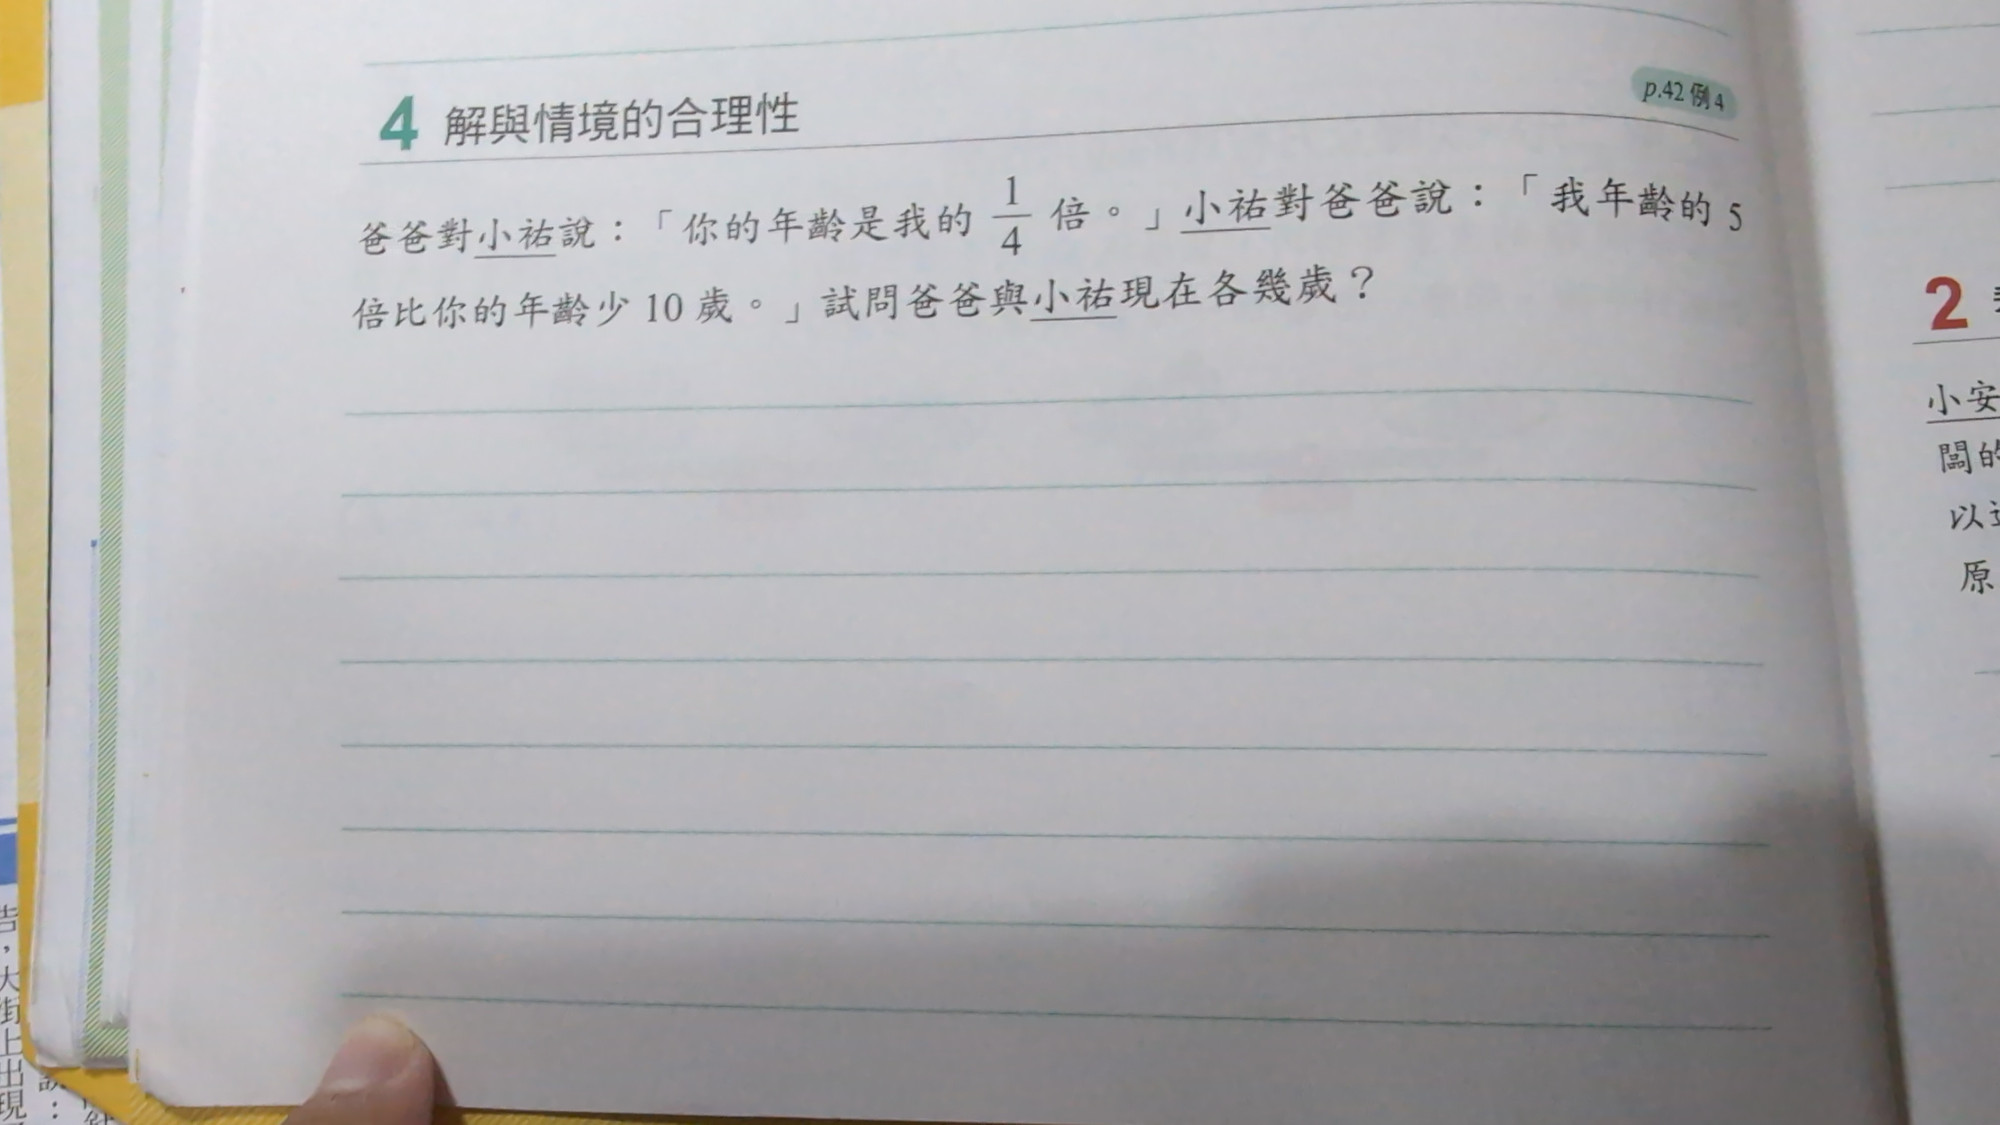 4 解與情境的合理性
p.42 例 4
爸爸對小祐說：「你的年齡是我的 1/4 倍。」小祐對爸爸說：「我年齡的 5
倍比你的年齡少 10 歲。」試問爸爸與小祐現在各幾歲？
2
小安
闆的
以
原
告，大街上出現